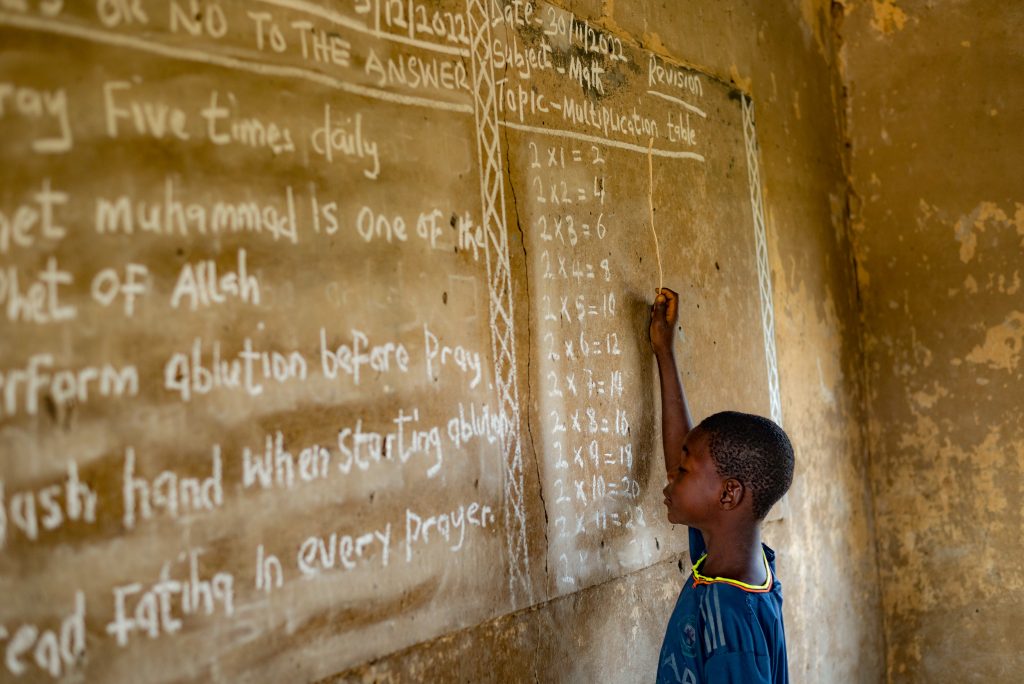 /12/2022
OR NO TO THE ANSWER
Five times daily
muhammad Is one of the
of Allah
ablution before Pray.
hand when starting ablution
read Fatiha In every prayer.
Date - 30/11/2022
Subject - Matt
Revision
Topic - Multiplication table
2 x 1 = 2
2 x 2 = 4
2 x 3 = 6
2 x 4 = 8
2 x 5 = 10
2 x 6 = 12
2 x 7 = 14
2 x 8 = 16
2 x 9 = 18
2 x 10 = 20
2 x 11 = 22
2 x